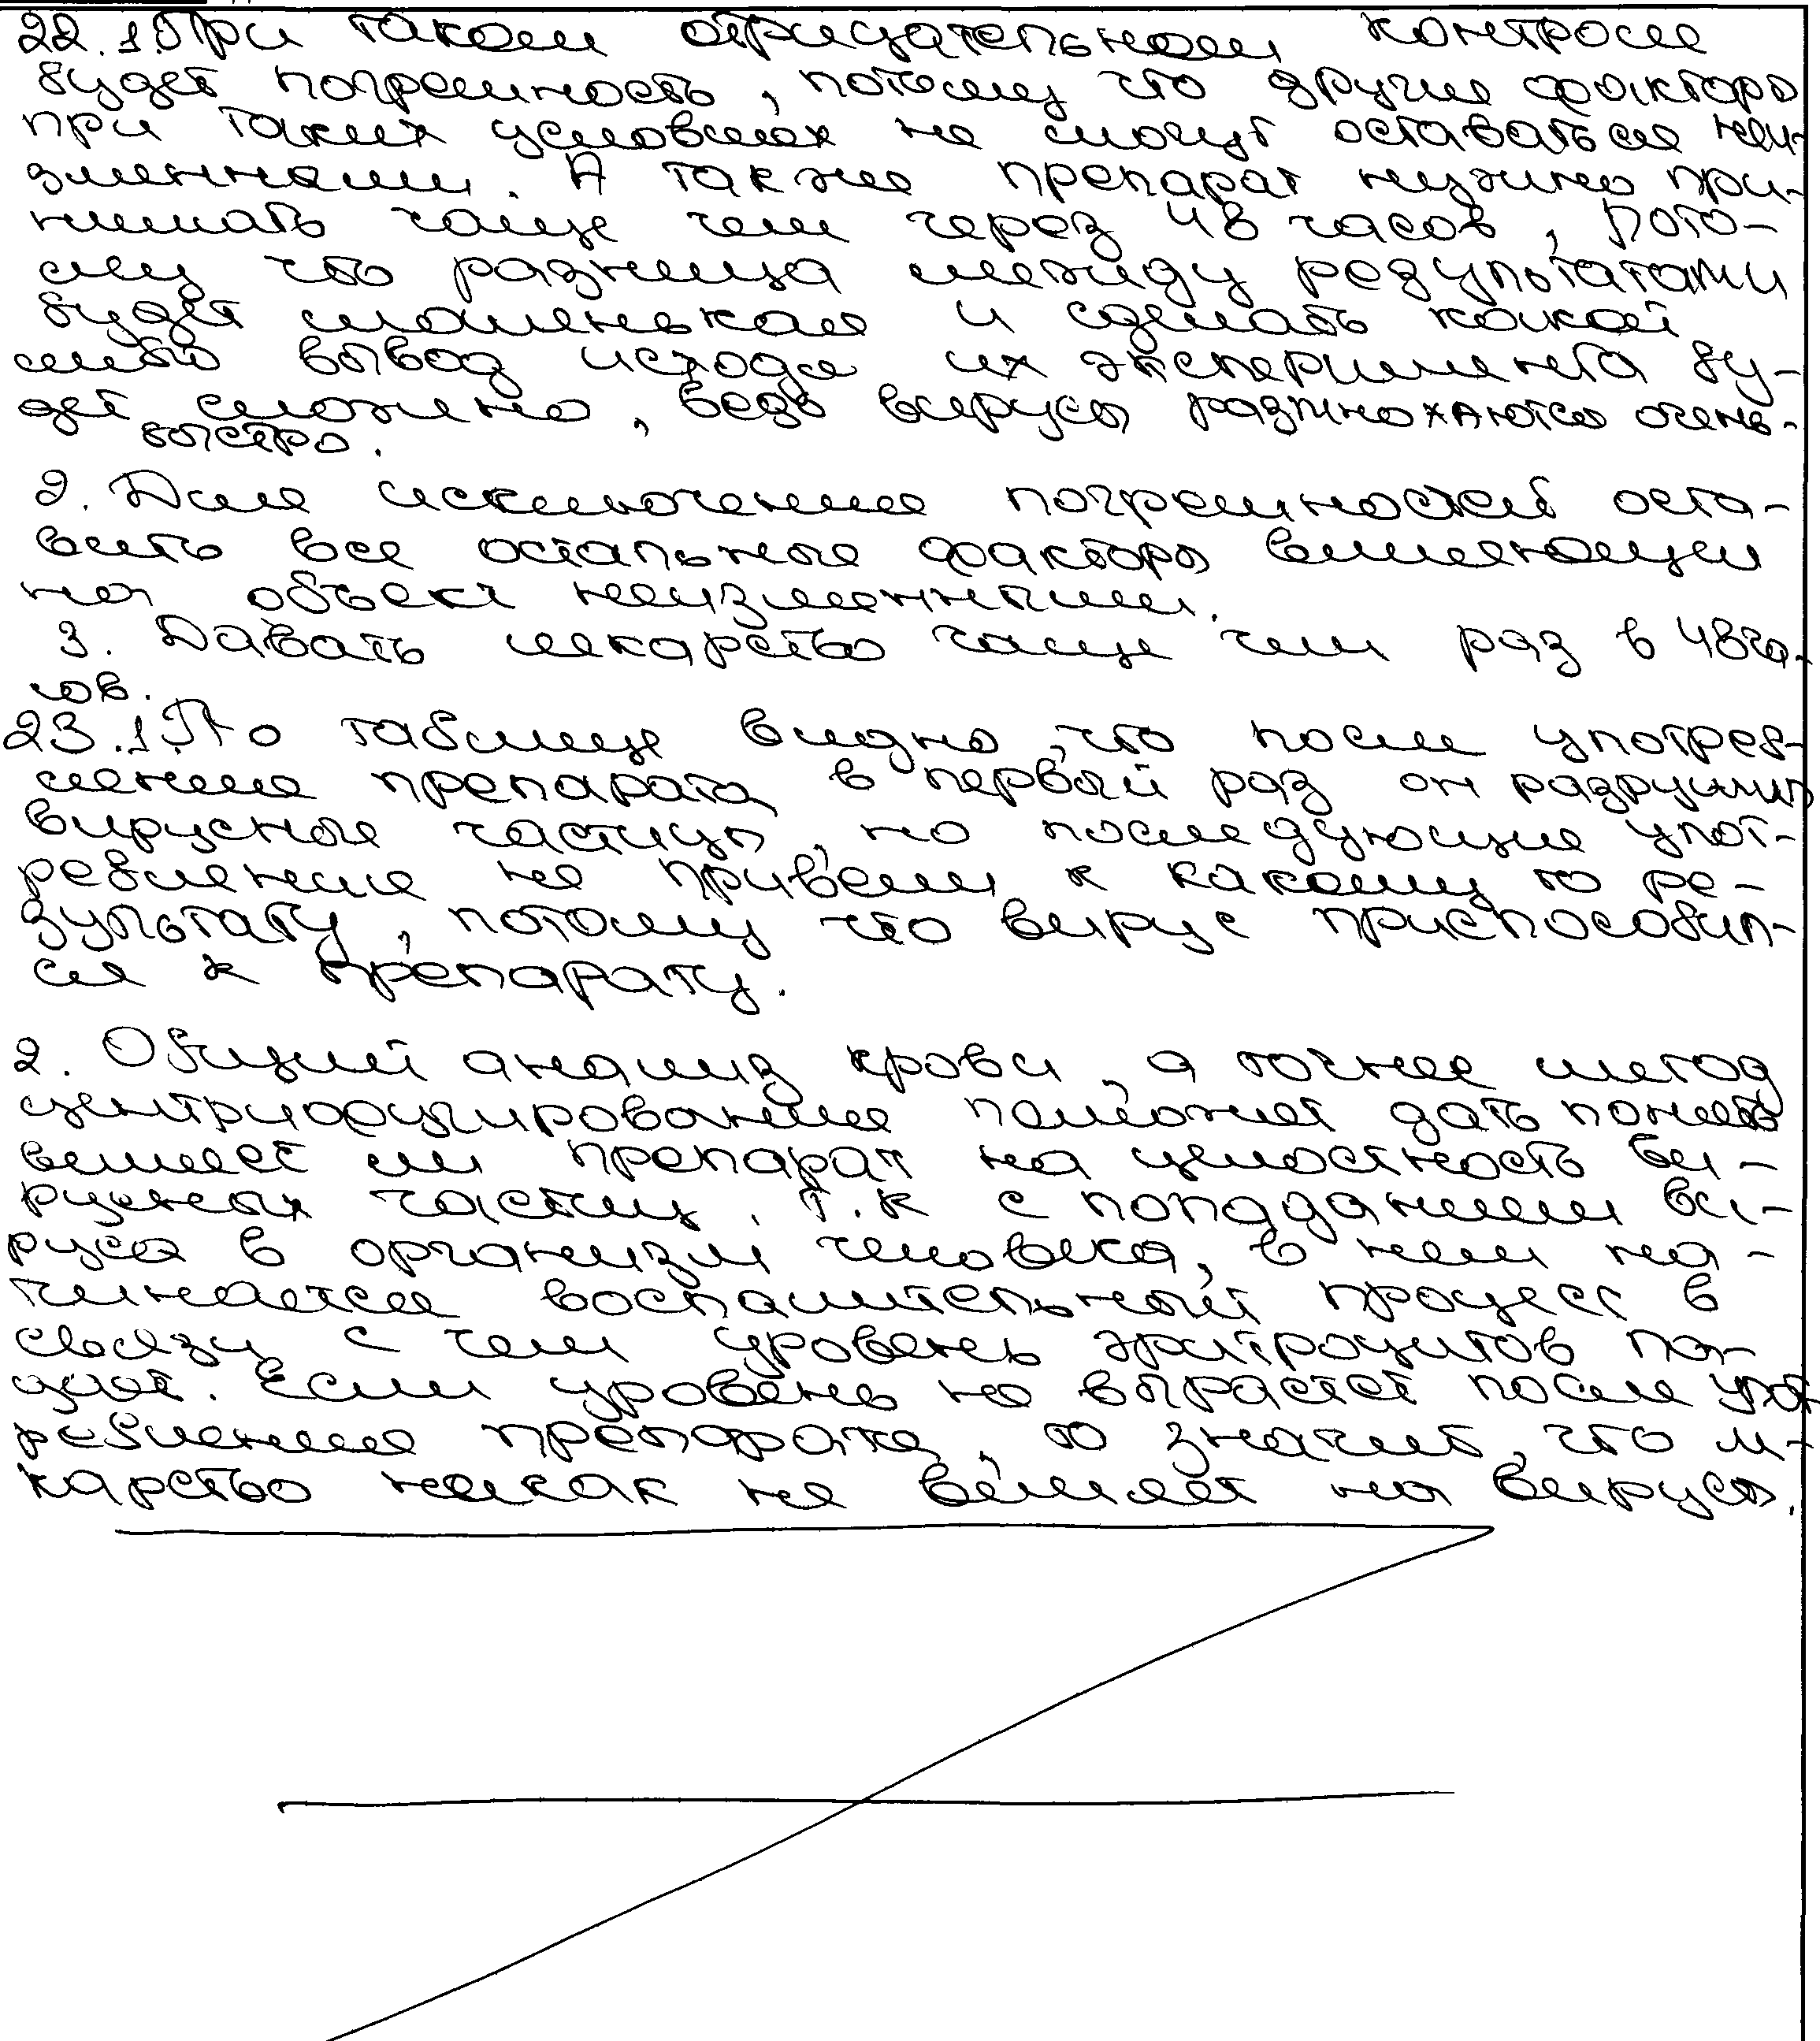 22. 1. При таком отрицательном контроле
будет погрешность, потому что другие факторы
при таких условиях не смогут оставаться неи-
зменными. А также препарат нужно при-
нимать чаще чем через 48 часов, пото-
му что разница между результатами
будет маленькая и сделать какой
либо вывод исходя их эксперимента бу-
дет сложно, ведь вирусы размножаются очень
быстро.
2. Для исключения погрешностей оста-
вить все остальные факторы влияющии
на объект неизменными.
3. Давать лекарство чаще чем раз в 48 ча-
сов.
23. 1. По таблице видно, что после употреб-
ления препарата в первый раз он разрушил
вирусные частицы, но последующие упот-
ребления не привели к какому то ре-
зультату, потому что вирус приспособил-
ся к препарату.
2. Общий анализ крови, а точнее метод
центрифугирования поможет дать понять
влияет ли препарат на целостность ви-
русных частиц. Т.к с попаданием ви-
руса в организм человека, в нем на-
чинается воспалительный процесс в
связи с чем уровень эритроцитов па-
дает. Если уровень не вырастет после упот
ребления препарата, то значит, что ле-
карство никак не влияет на вирусы.